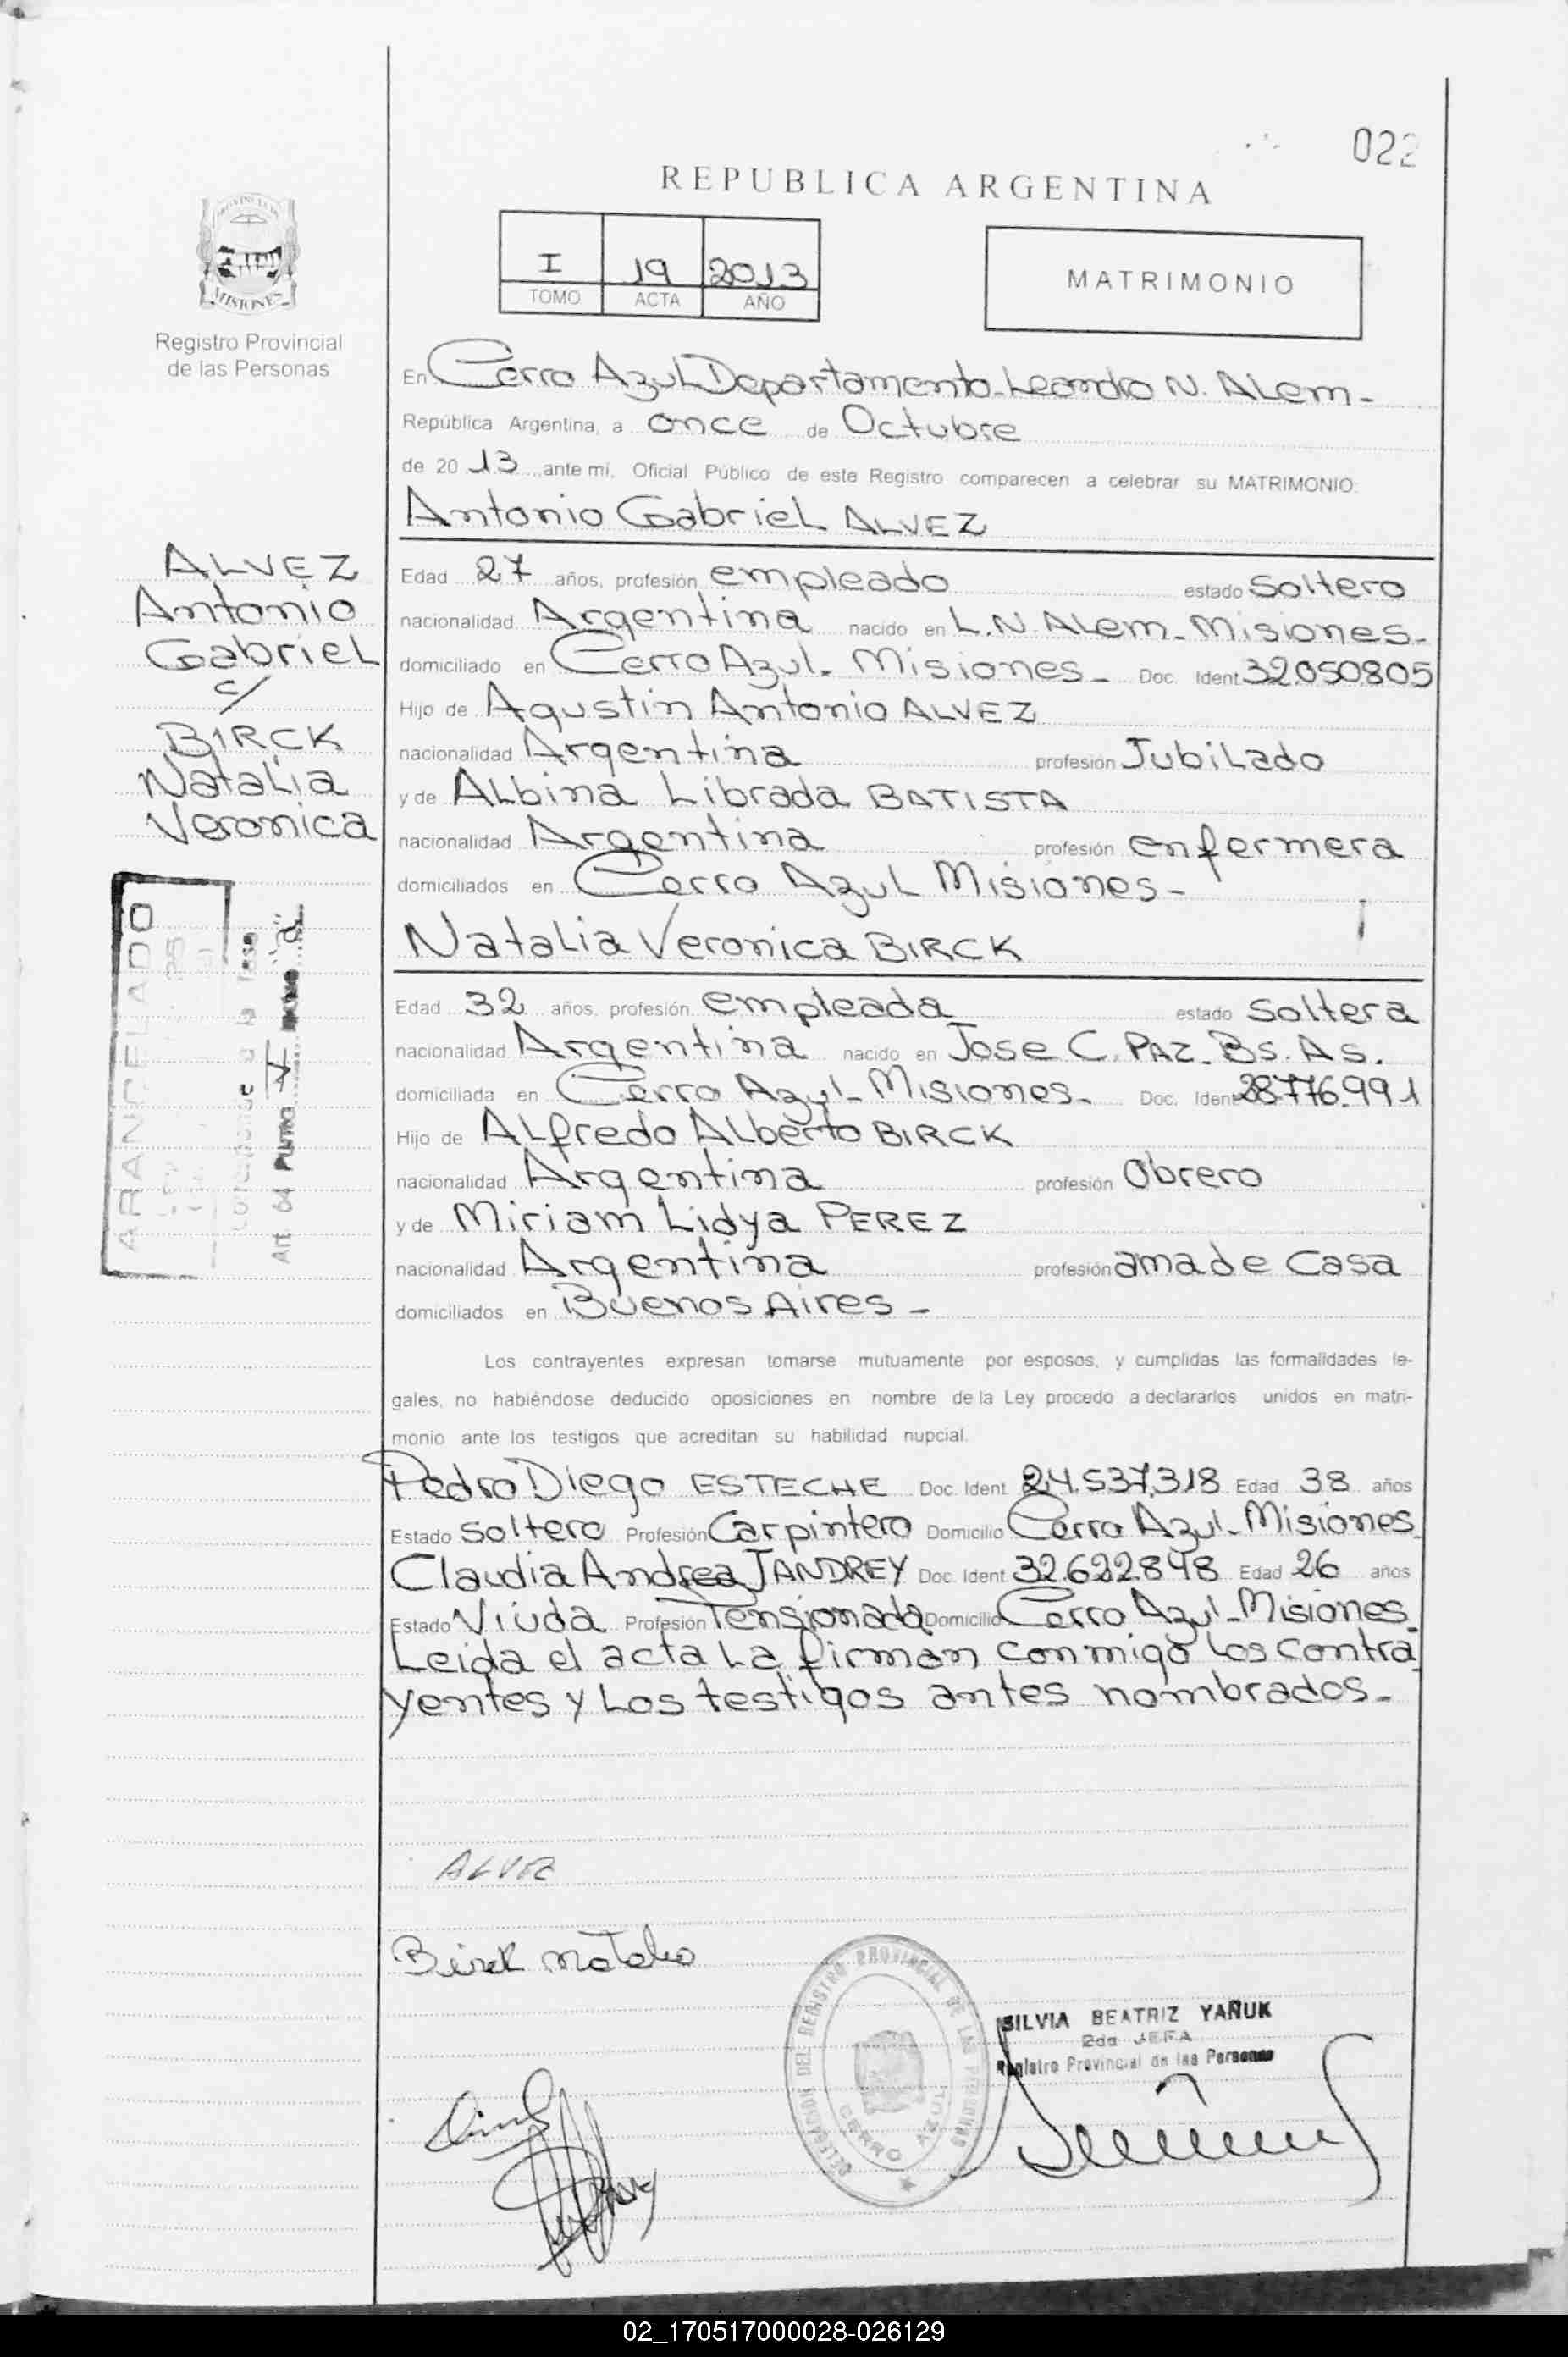 022
REPUBLICA ARGENTINA
I 19 2013
TOMO ACTA AÑO
MATRIMONIO
MISIONES
Registro Provincial
de las Personas
En Cerro Azul Departamento-Leandro N. Alem-
República Argentina, a once de Octubre
de 20 13 ante mi, Oficial Público de este Registro comparecen a celebrar su MATRIMONIO:
Antonio Gabriel ALVEZ
ALVEZ
Antonio
Gabriel
c/
BIRCK
Natalia
Veronica
Edad 27 años, profesión empleado estado Soltero
nacionalidad Argentina nacido en L.N. Alem-Misiones-
domiciliado en Cerro Azul-Misiones- Doc. Ident 32.050.805
Hijo de Agustin Antonio ALVEZ
nacionalidad Argentina profesión Jubilado
y de Albina Librada BATISTA
nacionalidad Argentina profesión enfermera
domiciliados en Cerro Azul Misiones-
Natalia Veronica BIRCK
ARANCELADO
corresponde a la Tasa
Art. 64 Punto V "a"
Edad 32 años, profesión empleada estado Soltera
nacionalidad Argentina nacido en Jose C. PAZ-Bs. As.
domiciliada en Cerro Azul-Misiones- Doc. Ident 28.776.991
Hijo de Alfredo Alberto BIRCK
nacionalidad Argentina profesión Obrero
y de Miriam Lidya PEREZ
nacionalidad Argentina profesión ama de Casa
domiciliados en Buenos Aires-
Los contrayentes expresan tomarse mutuamente por esposos, y cumplidas las formalidades le-
gales, no habiéndose deducido oposiciones en nombre de la Ley procedo a declararlos unidos en matri-
monio ante los testigos que acreditan su habilidad nupcial.
Pedro Diego ESTECHE Doc. Ident 24.537.318 Edad 38 años
Estado Soltero Profesión Carpintero Domicilio Cerro Azul-Misiones
Claudia Andrea JANDREY Doc. Ident 32.622.848 Edad 26 años
Estado Viuda Profesión Pensionada Domicilio Cerro Azul-Misiones
Leida el acta La firman conmigo los contra-
yentes y Los testigos antes nombrados-
ALVEZ
Birck Natalia
DELEGACION DEL REGISTRO PROVINCIAL DE LAS PERSONAS
CERRO AZUL
SILVIA BEATRIZ YAÑUK
2da JEFA
Registro Provincial de las Personas
02_170517000028-026129